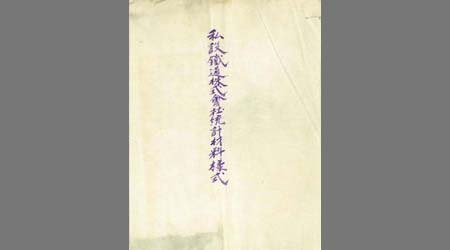 私設鐵道株式會社統計材料様式